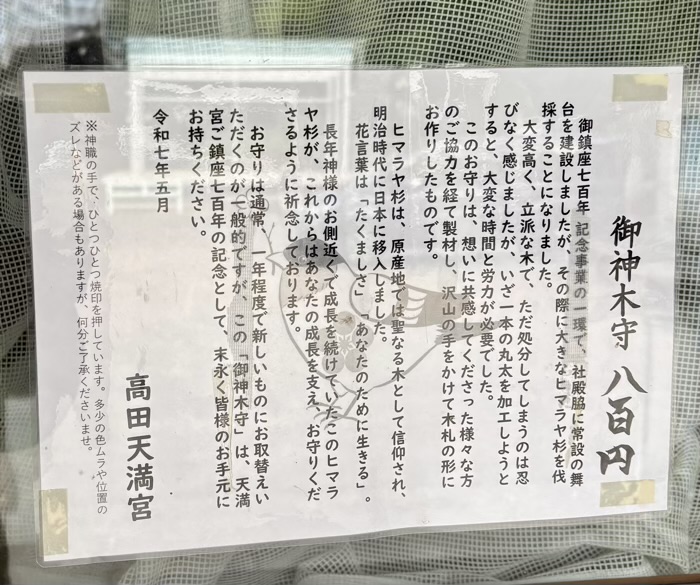 御神木守 八百円
御鎮座七百年 記念事業の一環で、社殿脇に常設の舞
台を建設しましたが、その際に大きなヒマラヤ杉を伐
採することになりました。
大変高く、立派な木で、ただ処分してしまうのは忍
びなく感じましたが、いざ一本の丸太を加工しようと
すると、大変な時間と労力が必要でした。
このお守りは、想いに共感してくださった様々な方
のご協力を経て製材し、沢山の手をかけて木札の形に
お作りしたものです。
ヒマラヤ杉は、原産地では聖なる木として信仰され、
明治時代に日本に移入しました。
花言葉は「たくましさ」「あなたのために生きる」。
長年神様のお側近くで成長を続けていたこのヒマラ
ヤ杉が、これからはあなたの成長を支え、お守りくだ
さるように祈念しております。
お守りは通常、一年程度で新しいものにお取替えい
ただくのが一般的ですが、この「御神木守」は、天満
宮ご鎮座七百年の記念として、末永く皆様のお手元に
お持ちください。
令和七年五月
高田天満宮
※神職の手で、ひとつひとつ焼印を押しています。多少の色ムラや位置の
ズレなどがある場合もありますが、何分ご了承くださいませ。